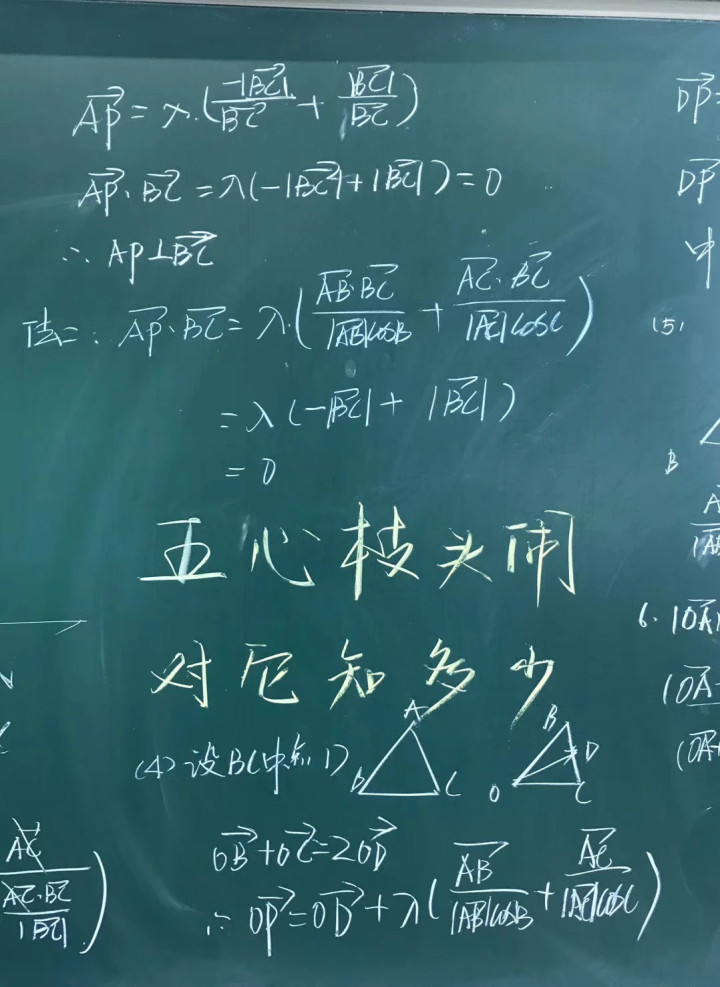 AP→ = λ·(-|BC→|/BC→ + |BC→|/BC→)
AP→·BC→ = λ(-|BC→|+|BC→|)=0
∴ AP⊥BC→
法二: AP→·BC→ = λ·(AB→·BC→/|AB→|cosB + AC→·BC→/|AC→|cosC)
= λ(-|BC→| + |BC→|)
= 0
五心枝头闹
对它知多少
(4) 设BC中点D
A
B
C
B
D
O
C
OB→+OC→=2OD→
∴ OP→=OD→+λ(AB→/|AB→|cosB + AC→/|AC→|cosC)
DP→=
DP→
中
(5)
B
6. |OA→|
AC→
AC→·BC→
|BC→|